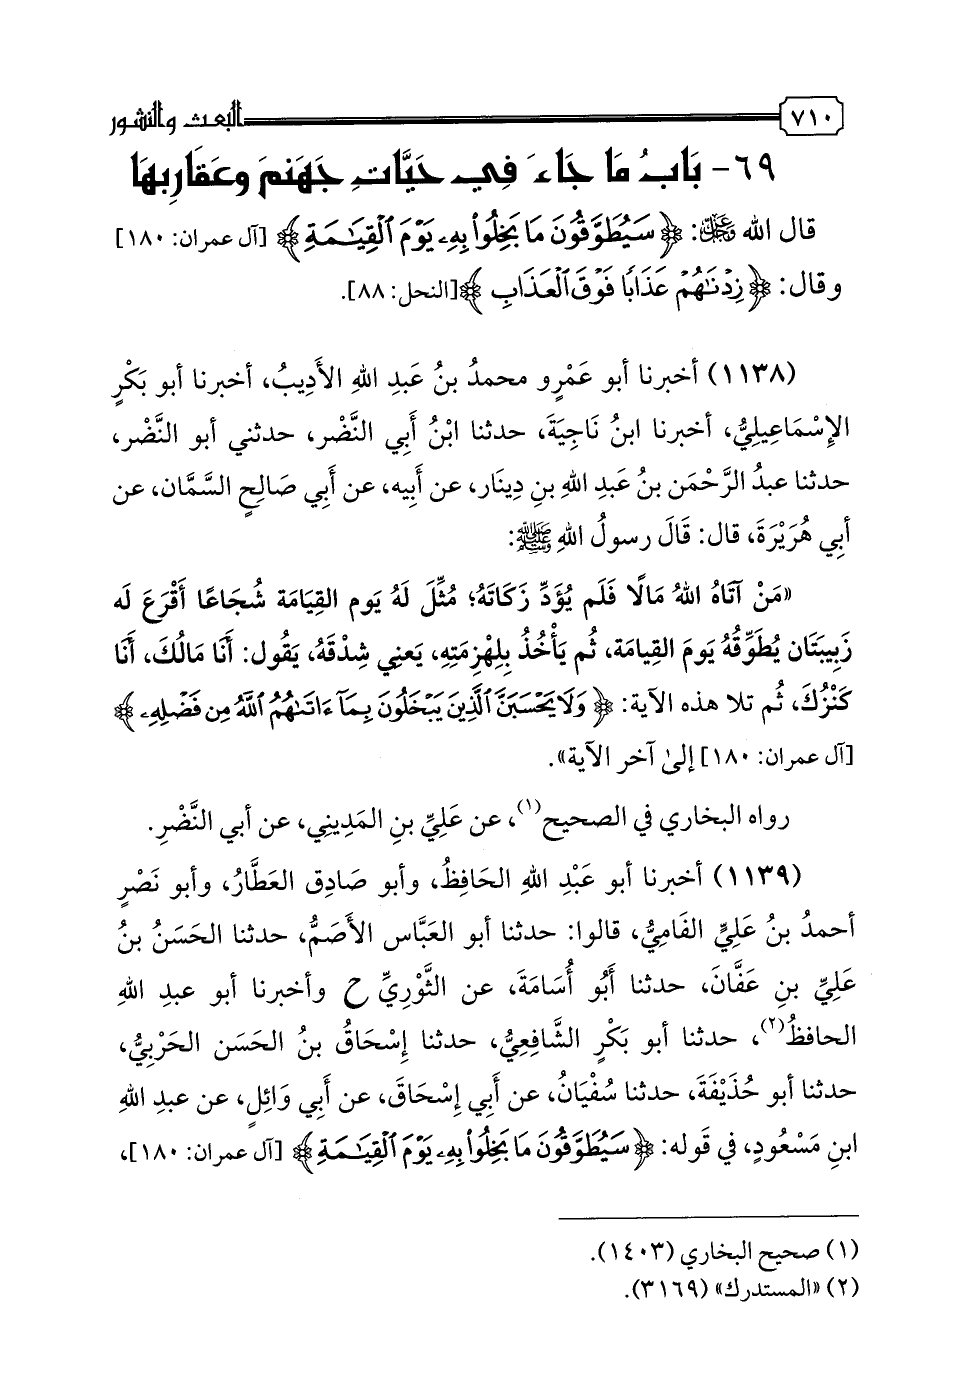 ٧١٠ البعث والنشور
٦٩- بَابُ مَا جَاءَ فِي حَيَّاتِ جَهَنمَ وعَقَارِبِهَا
قال الله ﷿: ﴿سَيُطَوَّقُونَ مَا بَخِلُواْ بِهِۦ يَوۡمَ ٱلۡقِيَٰمَةِ﴾ [آل عمران: ١٨٠]
وقال: ﴿زِدۡنَٰهُمۡ عَذَابٗا فَوۡقَ ٱلۡعَذَابِ﴾ [النحل: ٨٨].
(١١٣٨) أخبرنا أبو عَمْرٍو محمدُ بنُ عَبدِ اللهِ الأَدِيبُ، أخبرنا أبو بَكْرٍ
الإِسْمَاعِيلِيُّ، أخبرنا ابنُ نَاجِيَةَ، حدثنا ابْنُ أَبِي النَّضْر، حدثني أبو النَّضْر،
حدثنا عبدُ الرَّحْمَن بنُ عَبدِ اللهِ بنِ دِينَار، عن أَبِيه، عن أَبِي صَالِحٍ السَّمَّان، عن
أَبِي هُرَيْرَةَ، قال: قَالَ رسولُ اللهِ ﷺ:
«مَنْ آتَاهُ اللهُ مَالًا فَلَم يُؤَدِّ زَكَاتَهُ؛ مُثِّلَ لَهُ يَوم القِيَامَة شُجَاعًا أَقْرَعَ لَه
زَبِيبَتَان يُطَوِّقُهُ يَومَ القِيامَة، ثُم يَأْخُذُ بِلِهْزِمَتِهِ، يَعنِي شِدْقَهُ، يَقُول: أَنَا مَالُكَ، أَنَا
كَنْزُكَ، ثُم تلا هذه الآية: ﴿وَلَا يَحۡسَبَنَّ ٱلَّذِينَ يَبۡخَلُونَ بِمَآ ءَاتَىٰهُمُ ٱللَّهُ مِن فَضۡلِهِۦ﴾
[آل عمران: ١٨٠] إلىٰ آخر الآية».
رواه البخاري في الصحيح(١)، عن عَلِيِّ بنِ المَدِينِي، عن أبي النَّضْرِ.
(١١٣٩) أخبرنا أبو عَبْدِ اللهِ الحَافِظُ، وأبو صَادِق العَطَّارُ، وأبو نَصْرٍ
أحمدُ بنُ عَلِيٍّ الفَامِيُّ، قالوا: حدثنا أبو العَبَّاس الأَصَمُّ، حدثنا الحَسَنُ بنُ
عَلِيِّ بنِ عَفَّانَ، حدثنا أَبُو أُسَامَةَ، عن الثَّوْرِيِّ ح وأخبرنا أبو عبدِ اللهِ
الحافظُ(٢)، حدثنا أبو بَكْرٍ الشَّافِعِيُّ، حدثنا إِسْحَاقُ بنُ الحَسَن الحَرْبِيُّ،
حدثنا أبو حُذَيْفَةَ، حدثنا سُفْيَانُ، عن أَبِي إِسْحَاقَ، عن أَبِي وَائِلٍ، عن عبدِ اللهِ
ابنِ مَسْعُودٍ، في قَوله: ﴿سَيُطَوَّقُونَ مَا بَخِلُواْ بِهِۦ يَوۡمَ ٱلۡقِيَٰمَةِ﴾ [آل عمران: ١٨٠]،
(١) صحيح البخاري (١٤٠٣).
(٢) «المستدرك» (٣١٦٩).